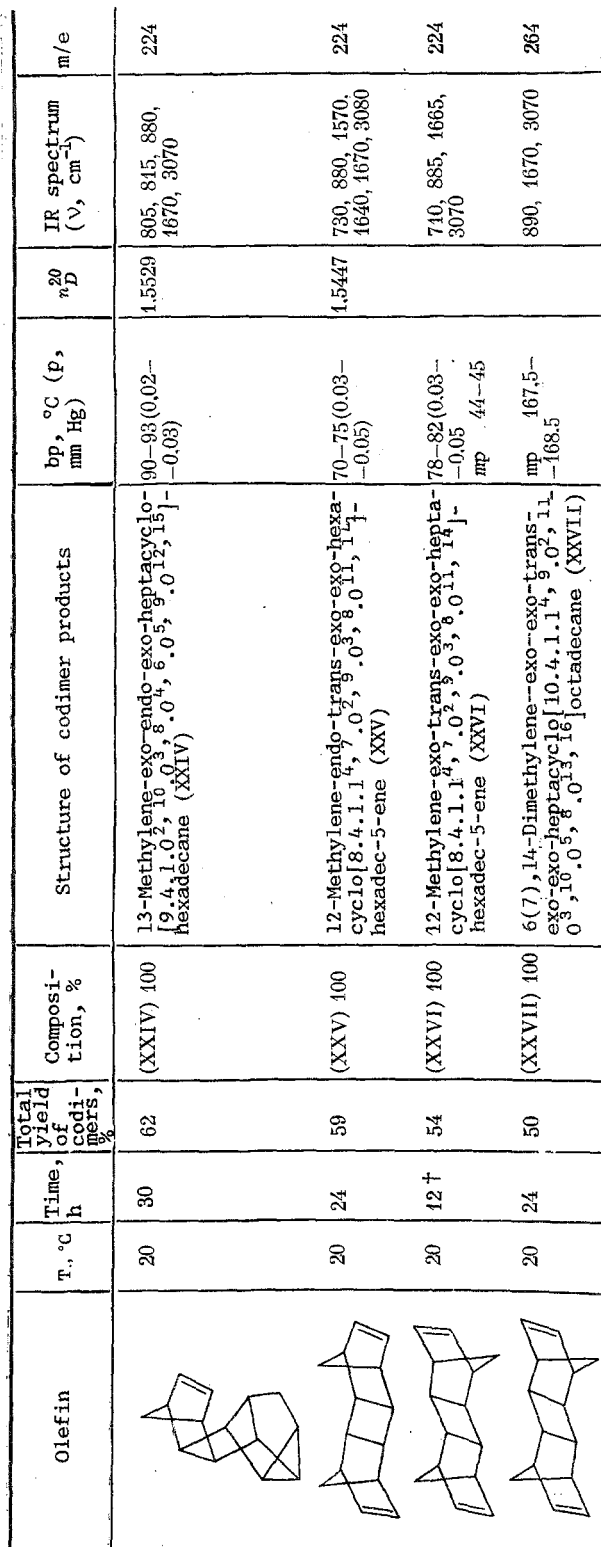 Olefin
T., °C
Time, h
Total yield of codimers, %
Composition, %
Structure of codimer products
bp, °C (p, mm Hg)
n 20 D
IR spectrum (ν, cm⁻¹)
m/e
20
30
62
(XXIV) 100
13-Methylene-exo-endo-exo-heptacyclo-
[9.4.1.0²,¹⁰.0³,⁸.0⁴,⁶.0⁵,⁹.0¹²,¹⁵]-
hexadecane (XXIV)
90–93(0.02–
–0.03)
1.5529
805, 815, 880,
1670, 3070
224
20
24
59
(XXV) 100
12-Methylene-endo-trans-exo-exo-hexa-
cyclo[8.4.1.1⁴,⁷.0²,⁹.0³,⁸.0¹¹,¹⁴]-
hexadec-5-ene (XXV)
70–75(0.03–
–0.05)
1.5447
730, 880, 1570,
1640, 1670, 3080
224
20
12†
54
(XXVI) 100
12-Methylene-exo-trans-exo-exo-hepta-
cyclo[8.4.1.1⁴,⁷.0²,⁹.0³,⁸.0¹¹,¹⁴]-
hexadec-5-ene (XXVI)
78–82(0.03–
–0.05
mp 44–45
710, 885, 1665,
3070
224
20
24
50
(XXVII) 100
6(7),14-Dimethylene--exo-exo-trans-
exo-exo-heptacyclo[10.4.1.1⁴,⁹.0²,¹¹.
0³,¹⁰.0⁵,⁸.0¹³,¹⁶]octadecane (XXVII)
mp 167.5–
–168.5
890, 1670, 3070
264